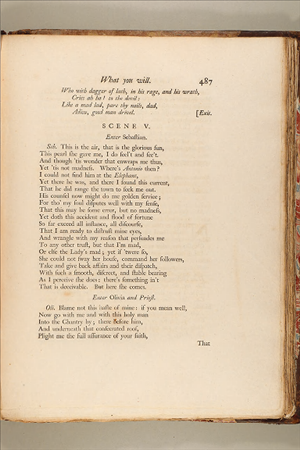 What you will. 487
Who with dagger of lath, in his rage, and his wrath,
Cries ah ha! to the devil:
Like a mad lad, pare thy nails, dad,
Adieu, good man drivel. [Exit.
SCENE V.
Enter Sebastian.
Seb. This is the air, that is the glorious sun,
This pearl she gave me, I do feel't and see't.
And though 'tis wonder that enwraps me thus,
Yet 'tis not madness. Where's Antonio then?
I could not find him at the Elephant,
Yet there he was, and there I found this current,
That he did range the town to seek me out.
His counsel now might do me golden service;
For tho' my soul disputes well with my sense,
That this may be some error, but no madness,
Yet doth this accident and flood of fortune
So far exceed all instance, all discourse,
That I am ready to distrust mine eyes,
And wrangle with my reason that persuades me
To any other trust, but that I'm mad,
Or else the Lady's mad; yet if 'twere so,
She could not sway her house, command her followers,
Take and give back affairs and their dispatch,
With such a smooth, discreet, and stable bearing
As I perceive she does: there's something in't
That is deceivable. But here she comes.
Enter Olivia and Priest.
Oli. Blame not this haste of mine: if you mean well,
Now go with me and with this holy man
Into the Chantry by; there before him,
And underneath that consecrated roof,
Plight me the full assurance of your faith,
That